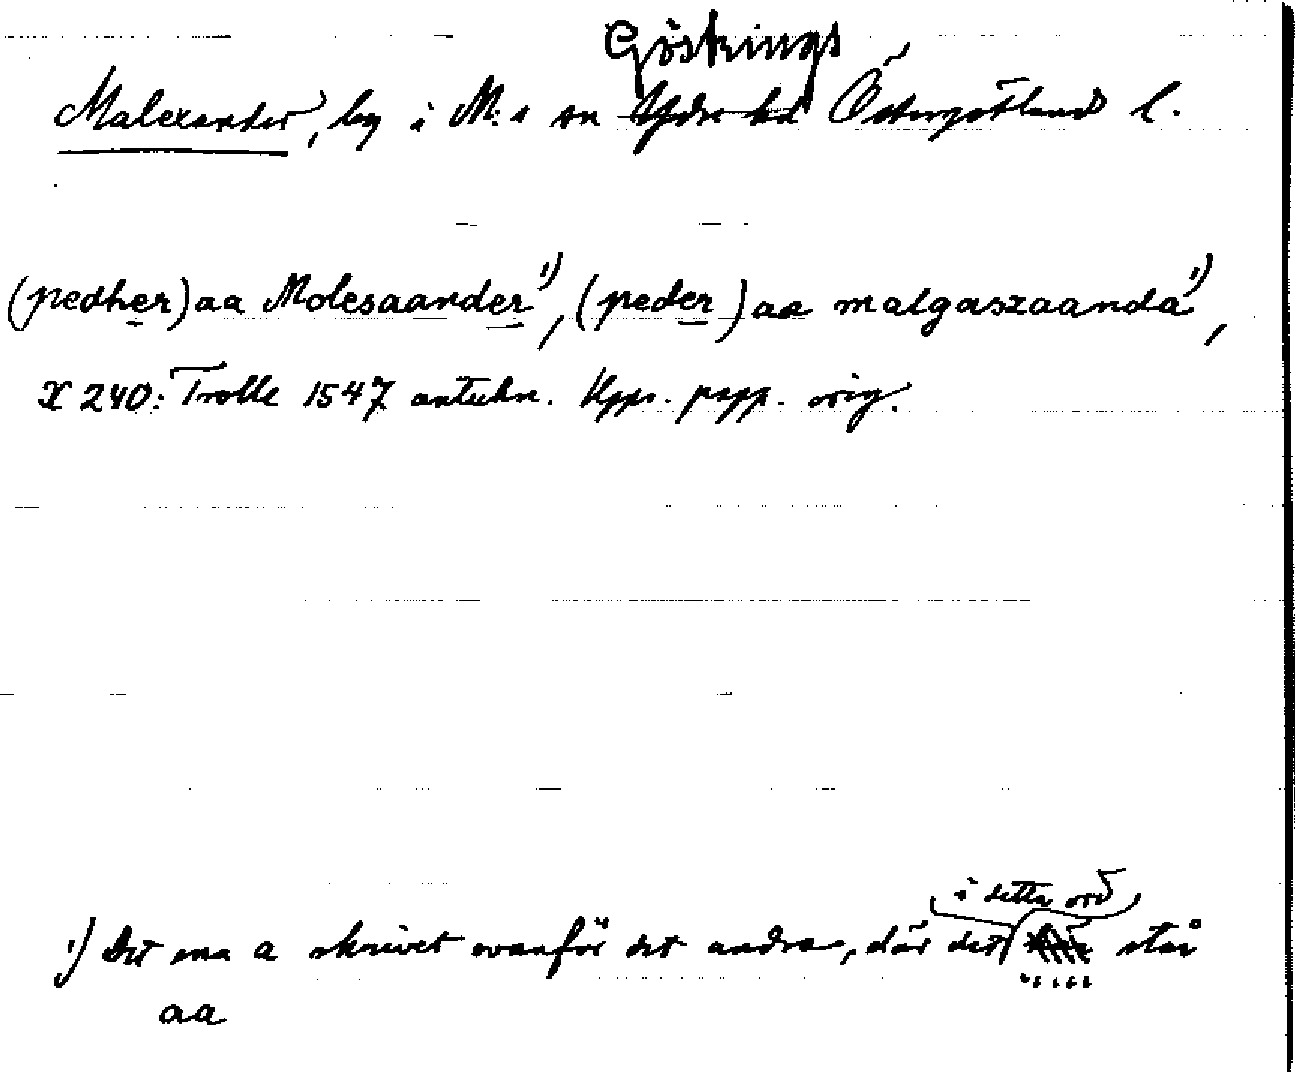 Göstrings
Malexander, by i M:s sn Ydre hd Östergötland l.
(pedher) aa Molesaander¹⁾, (peder) aa malgaszaanda¹⁾,
X 240: Trolle 1547 antekn. Upps. papp. orig.
i detta ord
¹⁾ Det ena a skrivet ovanför det andra, där det står
aa